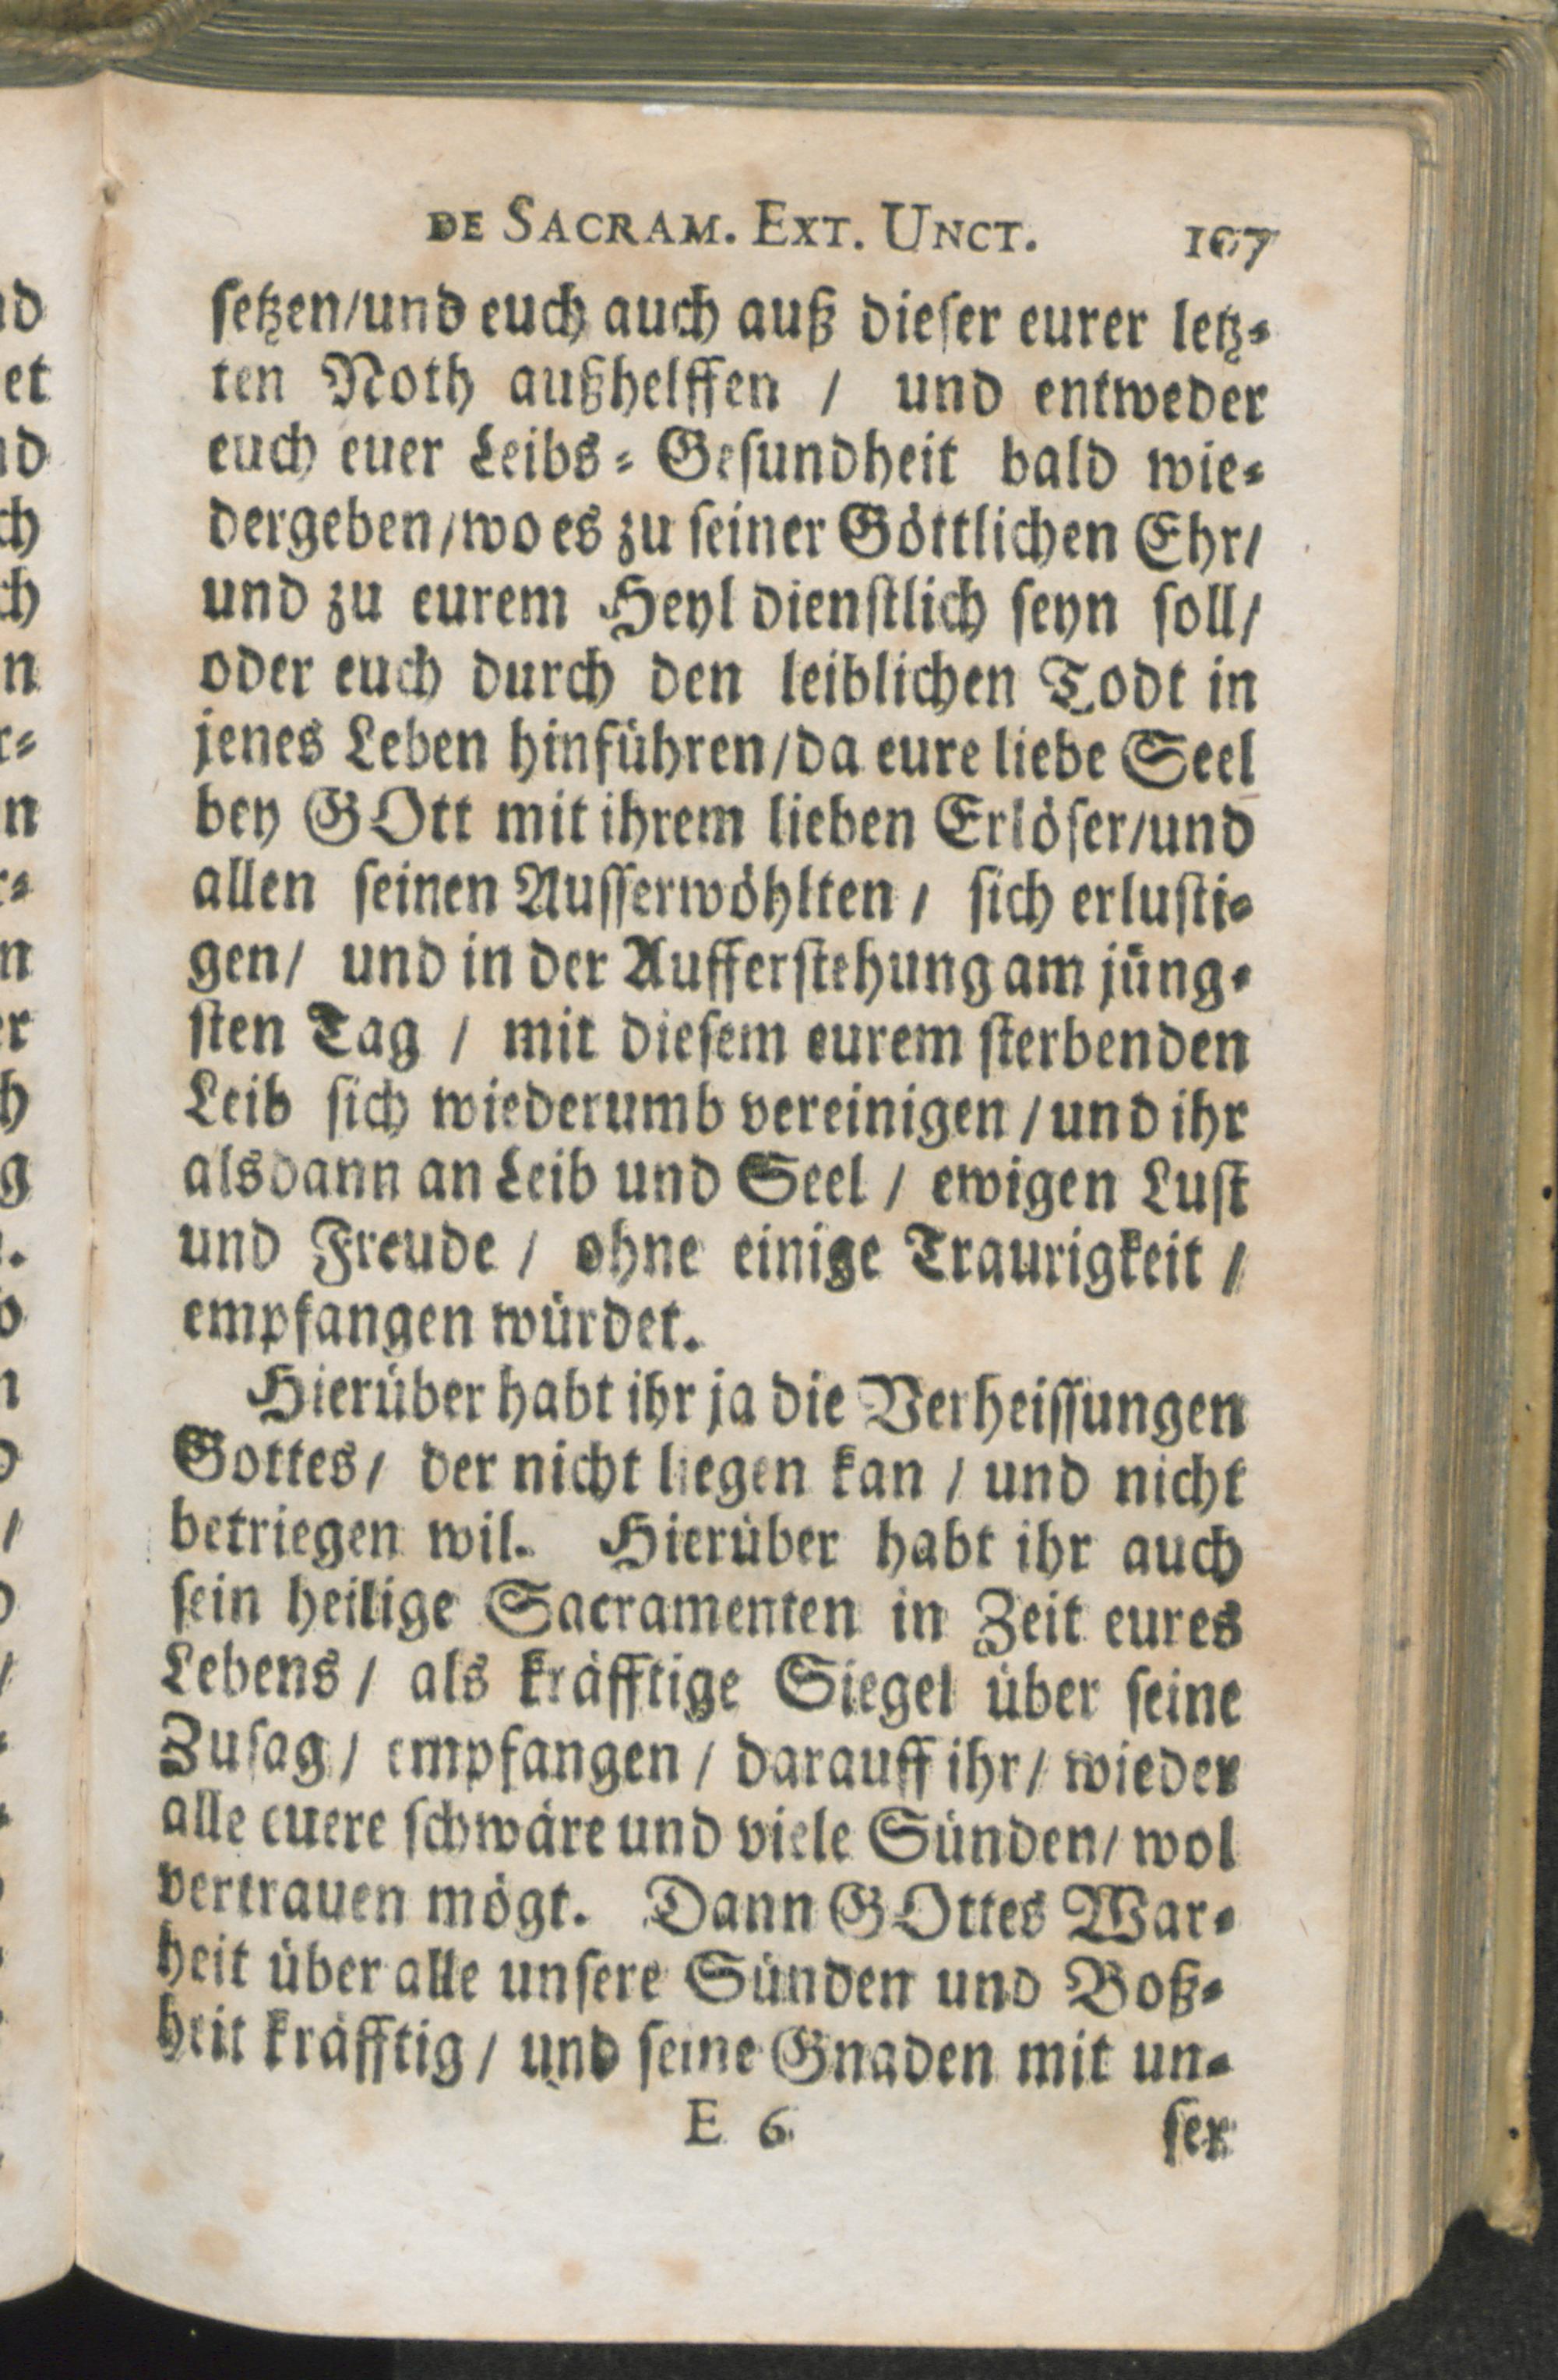 DE SACRAM. EXT. UNCT. 107
setzen/und euch auch auß dieser eurer letz-
ten Noth außhelffen / und entweder
euch euer Leibs-Gesundheit bald wie-
dergeben/wo es zu seiner Göttlichen Ehr/
und zu eurem Heyl dienstlich seyn soll/
oder euch durch den leiblichen Todt in
jenes Leben hinführen/da eure liebe Seel
bey GOtt mit ihrem lieben Erlöser/und
allen seinen Ausserwöhlten / sich erlusti-
gen/ und in der Aufferstehung am jüng-
sten Tag / mit diesem eurem sterbenden
Leib sich wiederumb vereinigen / und ihr
alsdann an Leib und Seel / ewigen Lust
und Freude / ohne einige Traurigkeit /
empfangen würdet.
Hierüber habt ihr ja die Verheissungen
Gottes/ der nicht liegen kan / und nicht
betriegen wil. Hierüber habt ihr auch
sein heilige Sacramenten in Zeit eures
Lebens / als kräfftige Siegel über seine
Zusag / empfangen / darauff ihr / wieder
alle euere schwäre und viele Sünden/ wol
vertrauen mögt. Dann GOttes War-
heit über alle unsere Sünden und Boß-
heit kräfftig / und seine Gnaden mit un-
E 6 ser